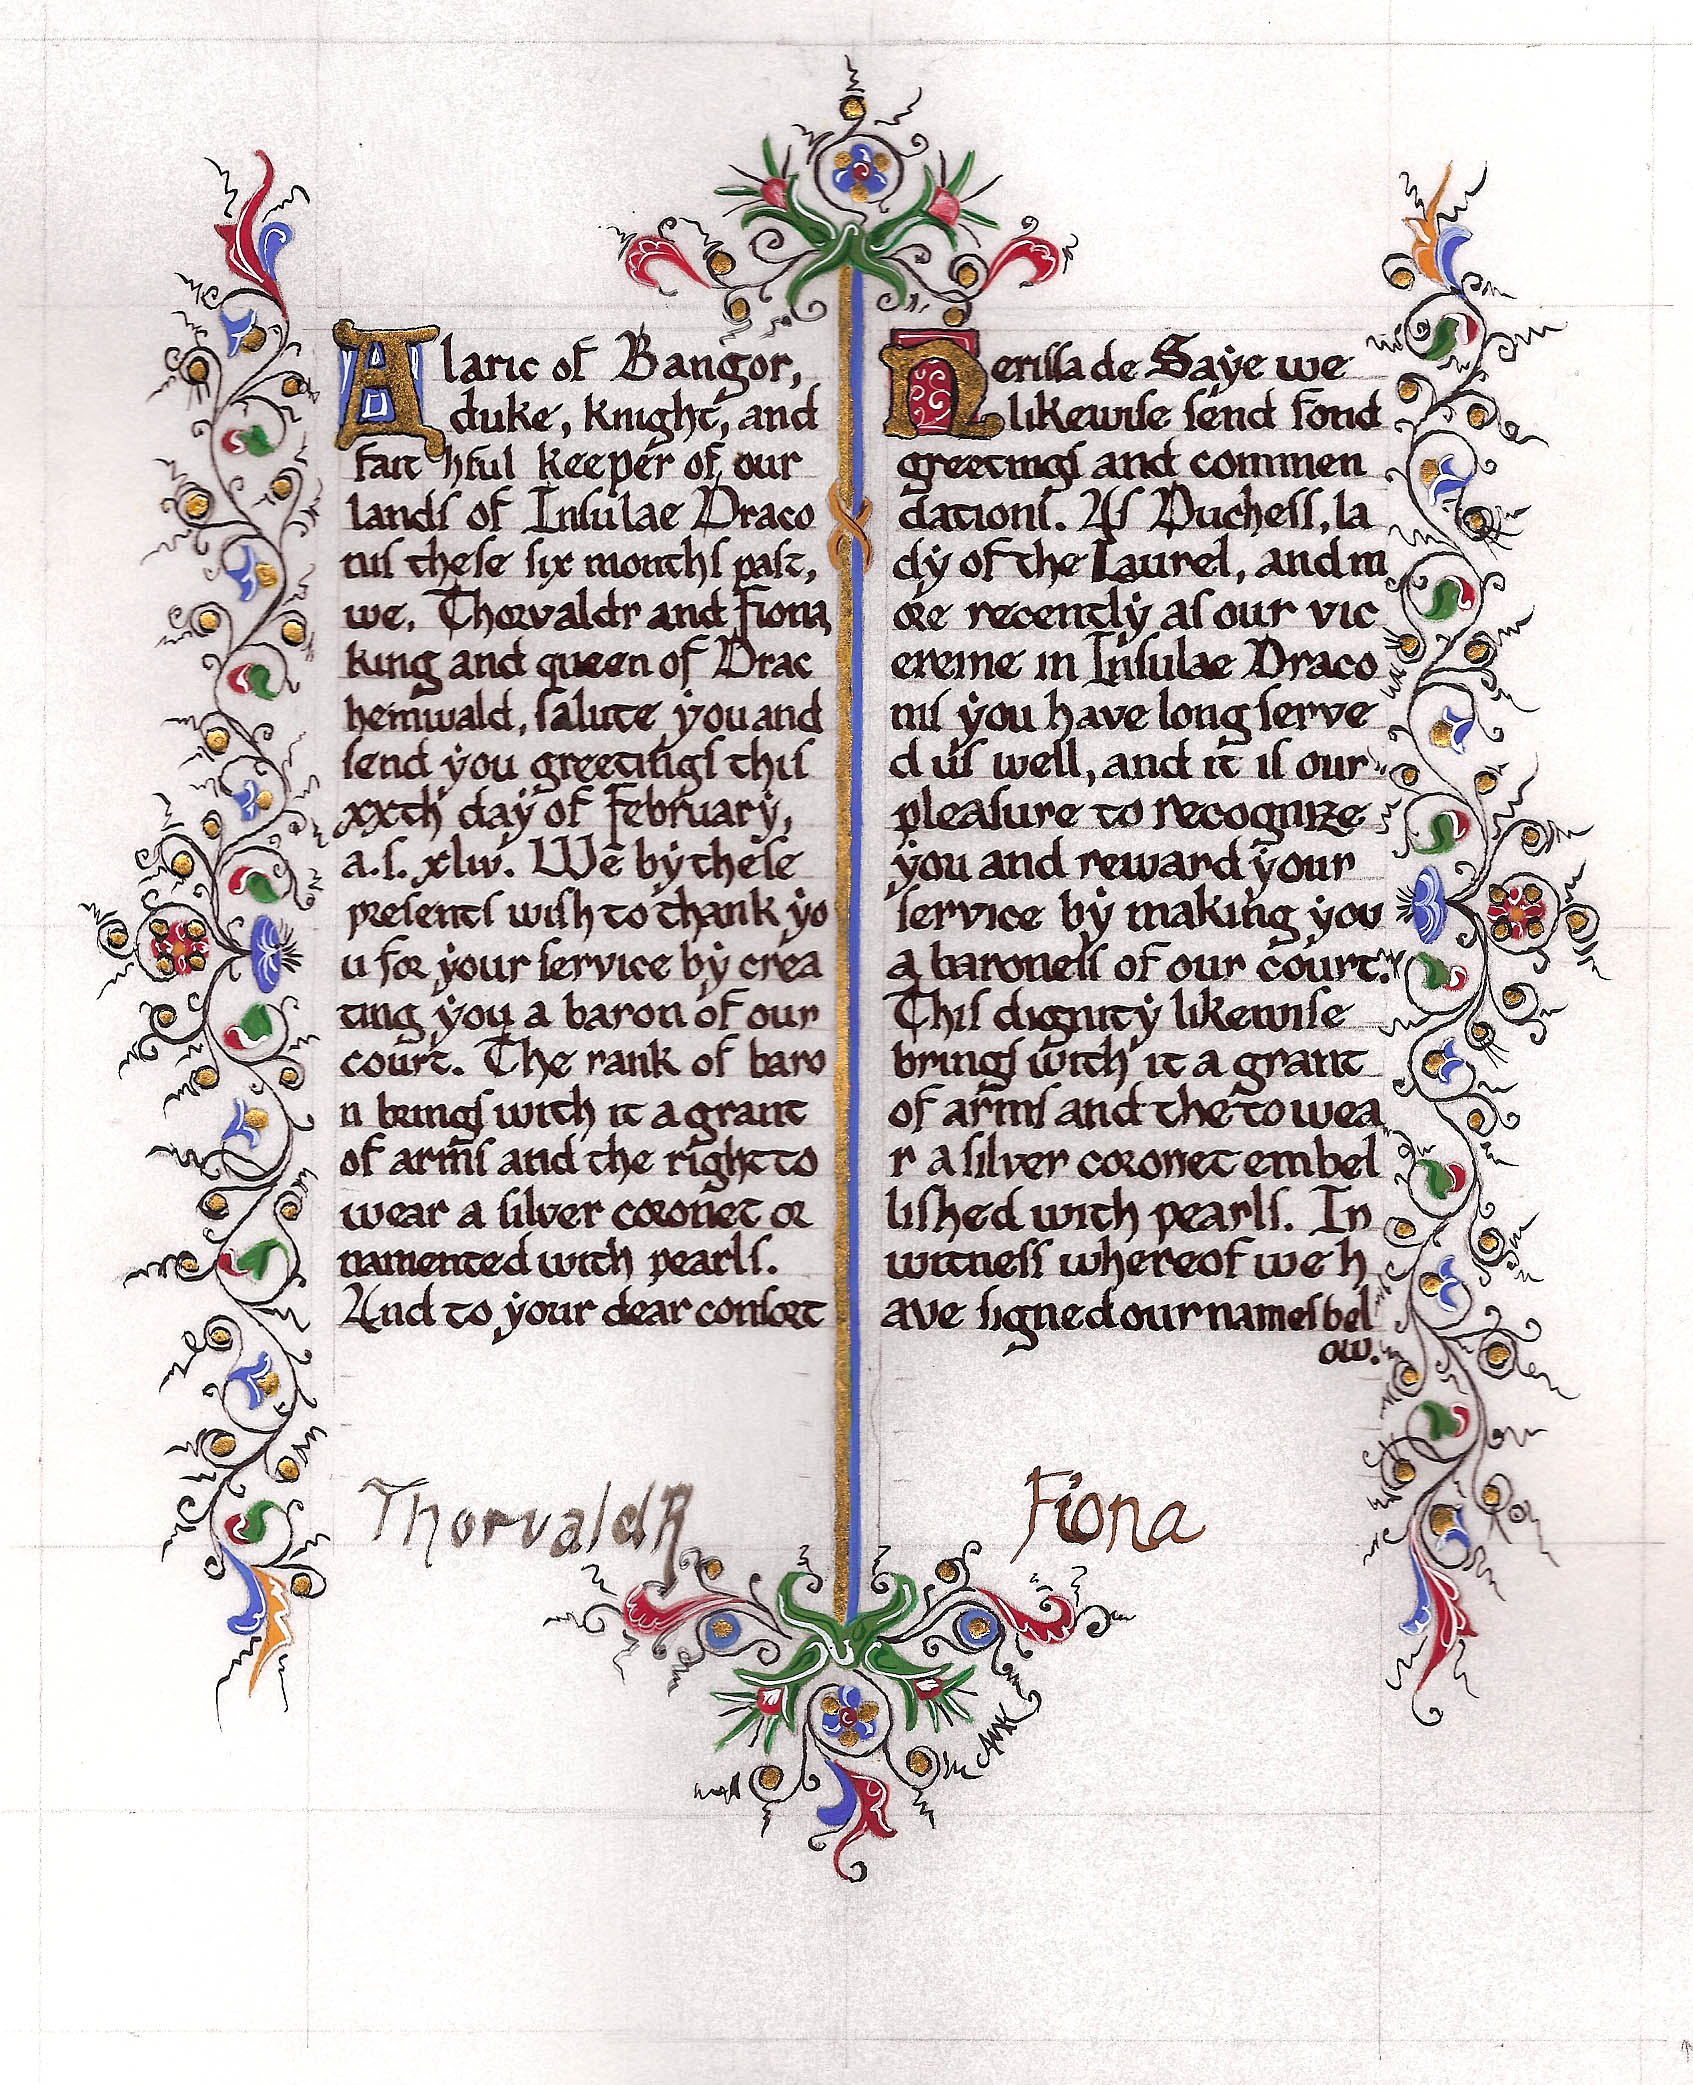 Alaric of Bangor,
duke, knight, and
faithful keeper of our
lands of Insulae Draco
nis these six months past,
we, Thorvaldr and Fiona,
king and queen of Drac
henwald, salute you and
send you greetings this
xxth day of February,
a.s. xliv. We by these
presents wish to thank yo
u for your service by crea
ting you a baron of our
court. The rank of baro
n brings with it a grant
of arms and the right to
wear a silver coronet or
namented with pearls.
And to your dear consort
Nerissa de Saye we
likewise send fond
greetings and commen
dations. As Duchess, la
dy of the Laurel, and m
ore recently as our vic
ereine in Insulae Draco
nis you have long serve
d us well, and it is our
pleasure to recognize
you and reward your
service by making you
a baroness of our court.
This dignity likewise
brings with it a grant
of arms and the to wea
r a silver coronet embel
lished with pearls. In
witness whereof we h
ave signed our names bel
ow.
ThorvaldR
Fiona